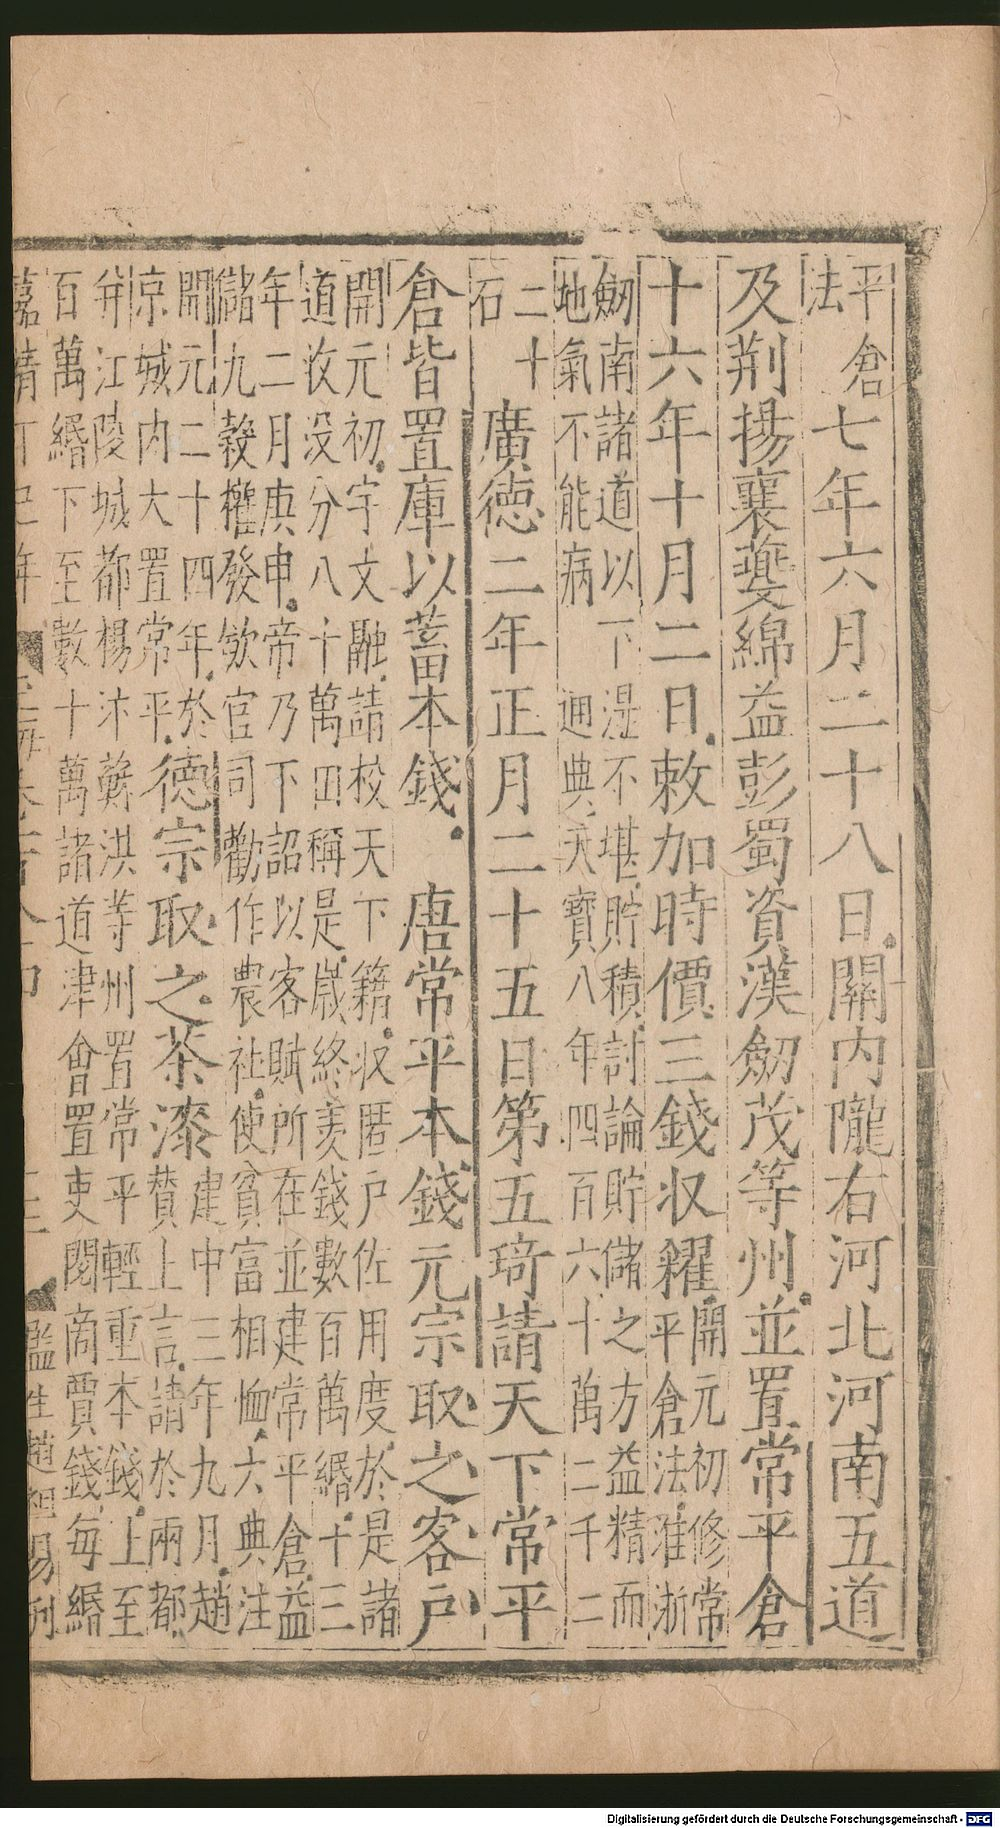 平倉
法
七年六月二十八日關内隴右河北河南五道
及荆揚襄夔綿益彭蜀資漢劒茂等州並置常平倉
十六年十月二日敕加時價三錢収糴
開元初修常
平倉法淮浙
劒南諸道以下湿不堪貯積討論貯儲之方益精而
地氣不能病 通典天寶八年四百六十萬二千二
二十
石
廣德二年正月二十五日第五琦請天下常平
倉皆置庫以蓄本錢 唐常平本錢元宗取之客户
開元初宇文融請校天下籍収匿户佐用度於是諸
道收没分八十萬田稱是歲終羡錢數百萬緡十三
年二月庚申帝乃下詔以客賦所在並建常平倉益
儲九穀權發欽官司勸作農社使貧富相恤六典注
開元二十四年於
京城内大置常平
德宗取之茶漆
建中三年九月趙
贊上言請於兩都
并江陵城都楊汴蘇洪等州置常平輕重本錢上至
百萬緡下至數十萬諸道津會置吏閱商賈錢每緡
年
監生趙 易刋
Digitalisierung gefördert durch die Deutsche Forschungsgemeinschaft - DFG